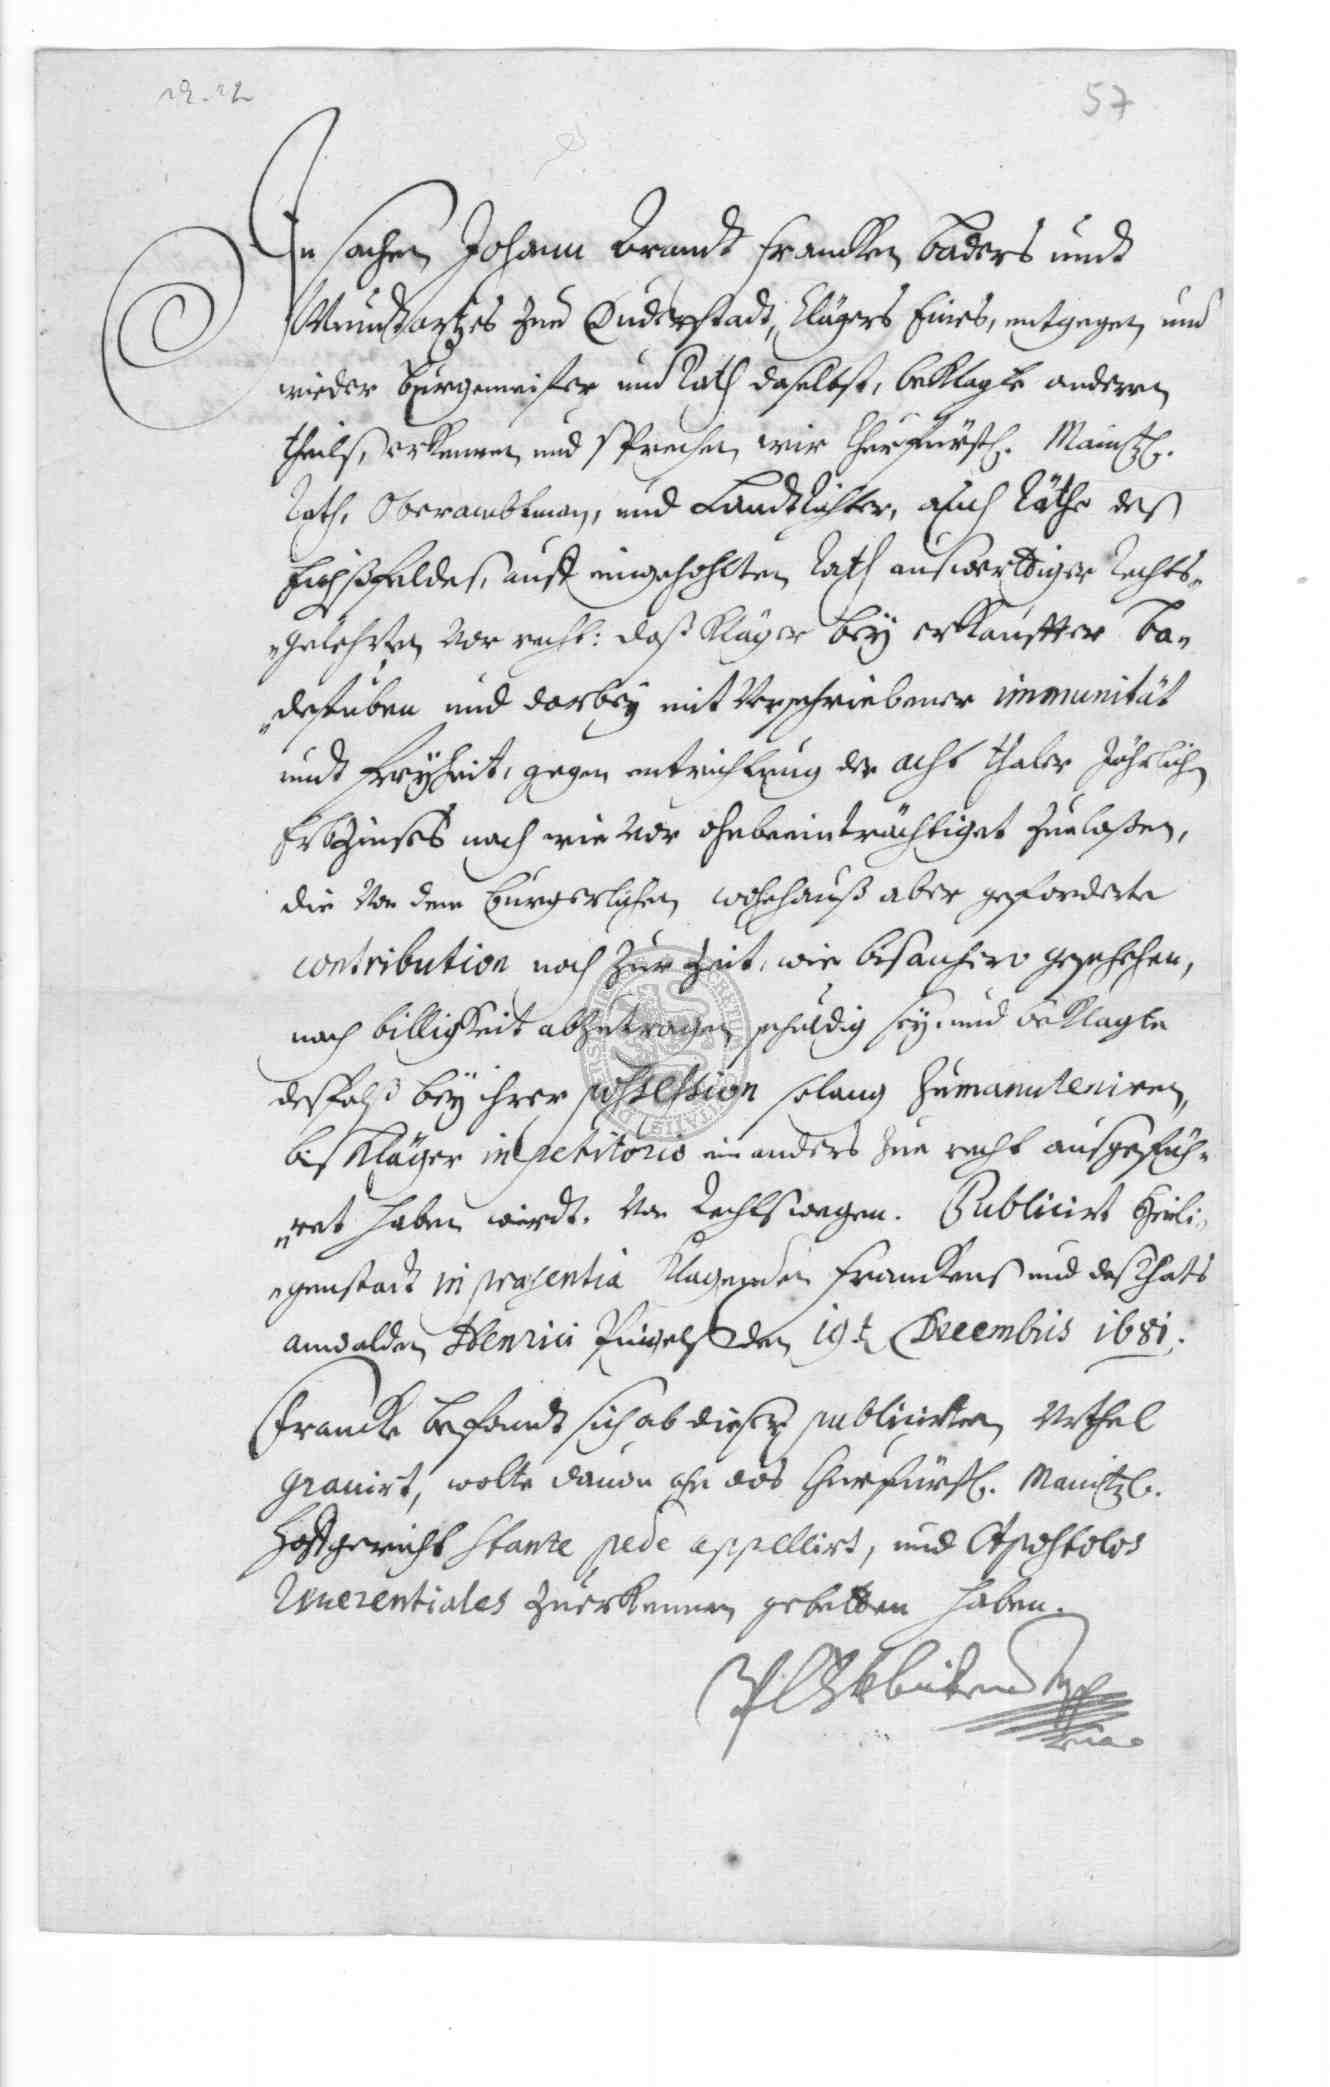 57
In sachen Johann Brandt Francken baders undt
Wundtartzes zue Duderstadt, Clägers Eines, entgegen und
wieder Burgemeister und Rath daselbst, beklagte anderen
theils, erkennen und sprechen wir Churfürstl. Maintzl.
Rath, Oberambtman, und Landtrichter, auch Räthe deß
Eichßfeldes, auff eingehohlten Rath auswerttiger Rechts„
„gelehrten vor recht: daß Kläger bey erkauffter ba„
„destuben und darbey mit verschriebener immunität
undt freyheit, gegen entrichtung der acht thaler Jährlichen
Erbzinses nach wie vor ohnbeeinträchtiget zue laßen,
die von dem burgerlichen wohnhauß aber geforderte
contribution noch zur Zeit, wie bisanhero geschehen,
nach billigkeit abzutragen schuldig sey, und beklagte
desfalß bey ihrer possession solang zu manuteniren,
bis Kläger in petitorio ein anders zue recht ausgefüh„
„ret haben wirdt. Von Rechtswegen. Publicirt Heili„
„genstadt in præsentia Klagenden Franckens und deß Raths
anwalden Henrici den 19t Decembris 1681.
Francke befandt sich ab dieser publicirten Urthel
gravirt, wolte davon ahn das Churfürstl. Maintzl.
Hoffgericht stante pede appellirt, und Apostolos
Reverentiales zu erkennen gebetten haben.